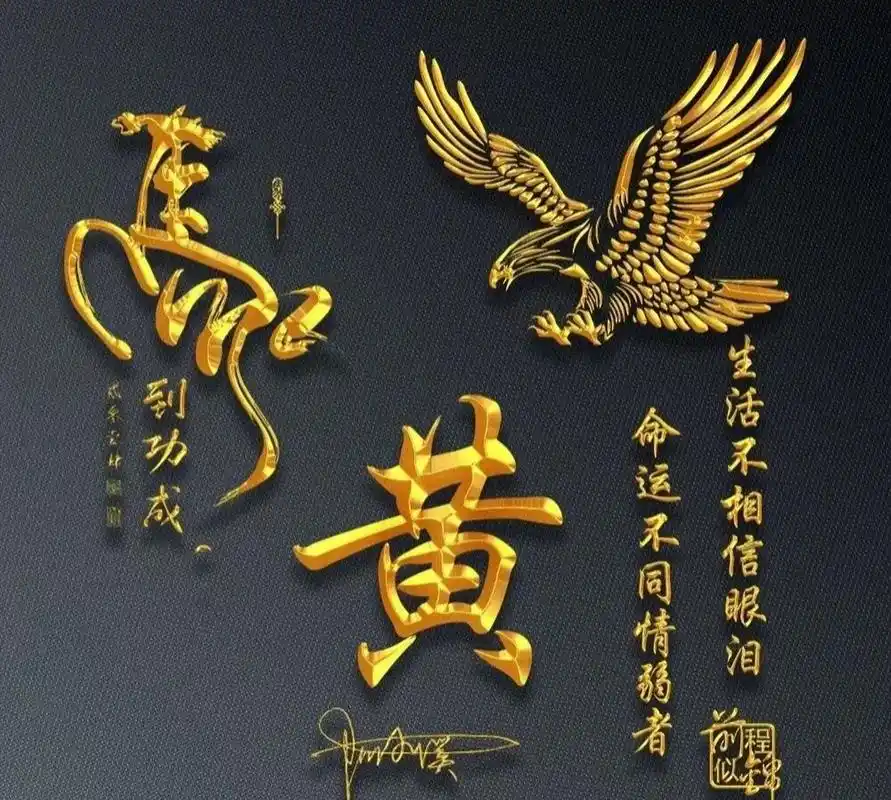 生活不相信眼泪
命运不同情弱者
前程似锦
马
到功成
黄